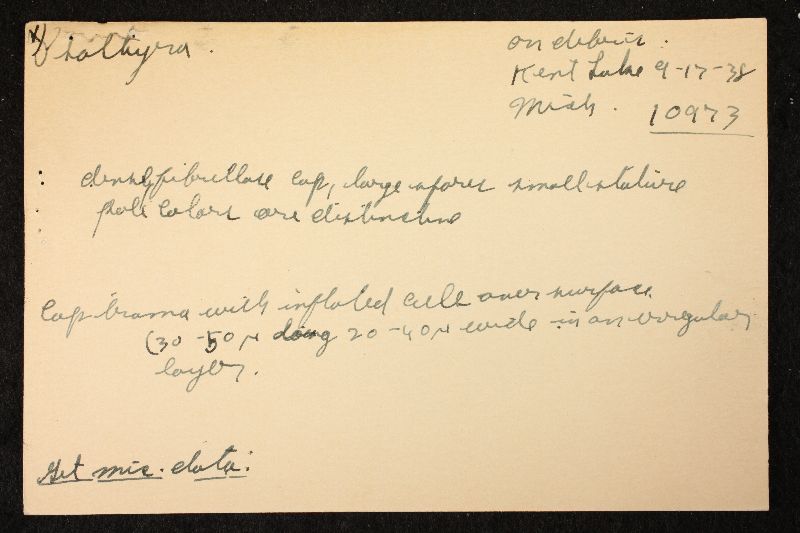 Psathyra.
on debris.
Kent Lake 9-17-38
Mich. 10973
densely fibrillose cap, large spores small stature
pale colors are distinctive
Cap trama with inflated cells over surface
(30-50 µ long 20-40 µ wide in an irregular
layer.
Get mic. data.